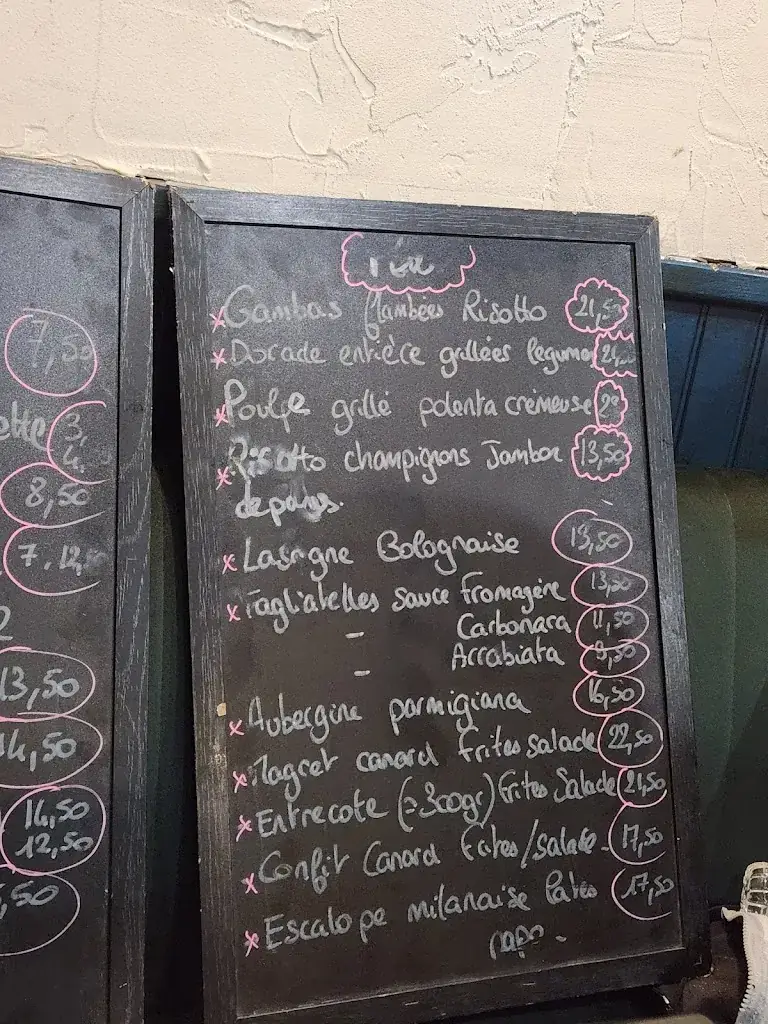 7,50
3,
4,
8,50
7.12,
2
13,50
14,50
14,50
12,50
,50
Gambas flambées Risotto 21,50
Dorade entière grillées legume
Poulpe grillé polenta crémeuse
Risotto champignons Jambon 13,50
de parus.
Lasagne Bolognaise 13,50
Tagliatelles sauce fromagère 13,50
- Carbonara 11,50
- Arrabiata 9,50
Aubergine parmigiana 16,50
Magret canard frites salade 22,50
Entrecote (≃300gr) frites Salade 21,50
Confit Canard Frites/salade. 17,50
Escalope milanaise Pates 17,50